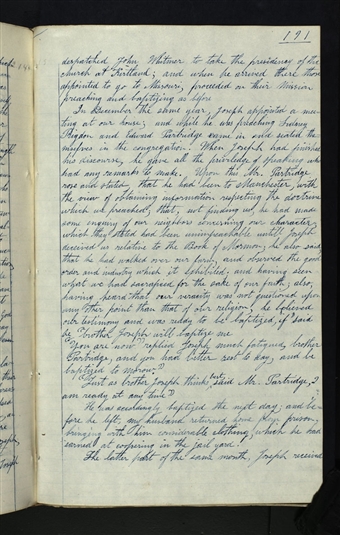 191
despatched John Whitmer to take the presidency of the
church at Kirtland; and when he arrived there those
appointed to go to Missouri, proceeded on their Mission
preaching and baptizing as before
In December the same year, Joseph appointed a mee-
ting at our house; and while he was preaching Sidney
Rigdon and Edward Partridge came in and seated the-
mselves in the congregation. When Joseph had finished
his discourse, he gave all the priviledge of speaking who
had any remarks to make. Upon this Mr. Partridge
rose and stated that he had been to Manchester, with
the view of obtaining information respecting the doctrine
which we preached; that, not finding us, he had made
some enquiry of our neighbors concerning our characters,
which they stated had been unimpeachable untill Joseph
deceived us relative to the Book of Mormon; he also said
that he had walked over our farm, and observed the good
order and industry which it exhibited; and having seen
what we had sacrificed for the sake of our faith; also,
having heard that our veracity was not questioned upon
any other point than that of our religion; he believed
our testimony and was ready to be baptized, if said
he "brother Joseph will baptize me
You are now" replied Joseph "much fatigued, brother
Partridge, and you had better rest to day, and be
baptized to morow"
"Just as brother Joseph thinks best" said Mr. Partridge, "I
am ready at any time"
He was accordingly baptized the next day; and be-
fore he left, my husband returned home from prison,
bringing with him considerable clothing, which he had
earned at coopering in the jail yard.
The latter part of the same month, Joseph received